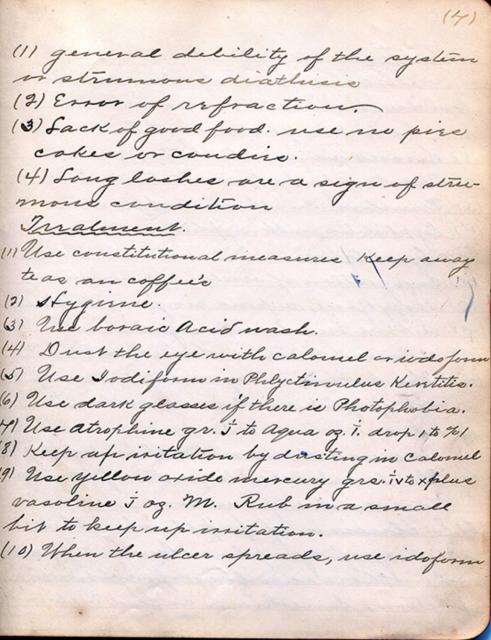 (4)
(1) general debility of the system
or strumous diathisis
(2) Error of refraction.
(3) Lack of good food. use no pies
cakes or candies.
(4) Long lashes are a sign of stru-
mous condition
Treatment.
(1) Use constitutional measures Keep away
teas an coffee's
(2) Hygiene.
(3) Use boraic Acid wash.
(4) Dust the eye with calomel or iodoform
(5) Use Iodiform in Phlyctinulus Kentitis.
(6) Use dark glasses if there is Photophobia.
(7) Use Atrophine gr. to Aqua oz drop
(8) Keep up irritation by dusting in calomel
(9) Use Yellow oxide mercury grs. to plus
vasoline oz. M. Rub in a small
bit to keep up irritation.
(10) When the ulcer spreads, use idoform